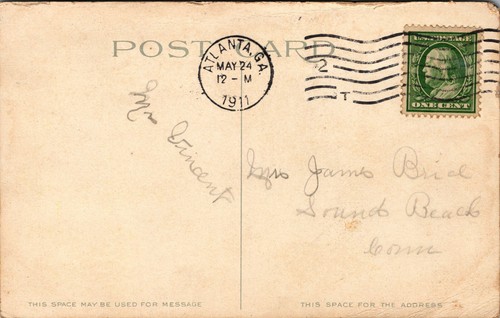 POST CARD
ATLANTA, GA.
MAY 24
12 - M
1911
2
T
ONE CENT
Mr Vincent
Mrs James Brid
Sound Beach
Conn
THIS SPACE MAY BE USED FOR MESSAGE
THIS SPACE FOR THE ADDRESS